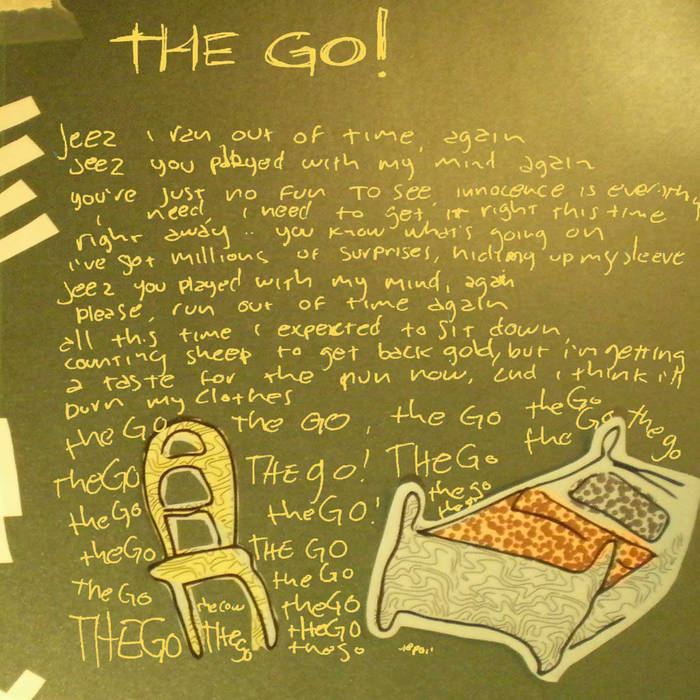 THE GO!
Jeez i ran out of time, again
Jeez you played with my mind again
you're just no fun to see, innocence is everything
i need, i need to get it right this time
right away.. you know what's going on
i've got millions of surprises, hiding up my sleeve
Jeez you played with my mind, again
please, run out of time again
all this time i expected to sit down,
counting sheep to get back gold, but i'm getting
a taste for the now, and i think i'll
burn my clothes
the GO, the GO, the GO the Go the go
the Go
TheGo THE go! THE Go
the go
the Go the GO!
the Go THE GO
the Go
The Go the Go
THEGo THE go the GO
the go